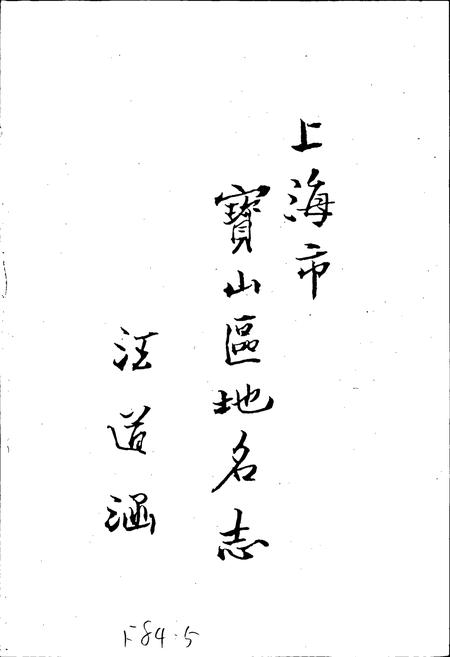 上海市
寶山區地名志
汪道涵
F84.5